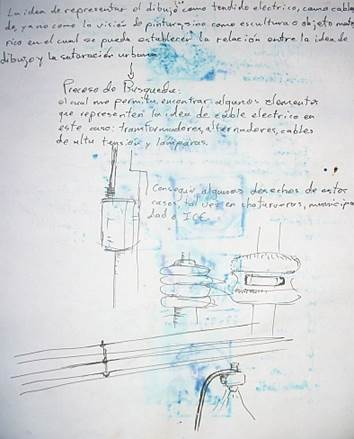 La idea de representar el dibujo como tendido electrico, como cable
de, ya no como la visión de pintura, sino como escultura o objeto mate
rico en el cual se pueda establecer la relación entre la idea de
dibujo y la saturación urbana
Proceso de Busqueda:
el cual me permita encontrar algunos elementos
que representen la idea de cable electrico en
este caso: transformadores, alternadores, cables
de alta tensión y lámparas.
Conseguir algunos desechos de estas
cosas, tal vez en chatarreras, municipa
dad o ICE